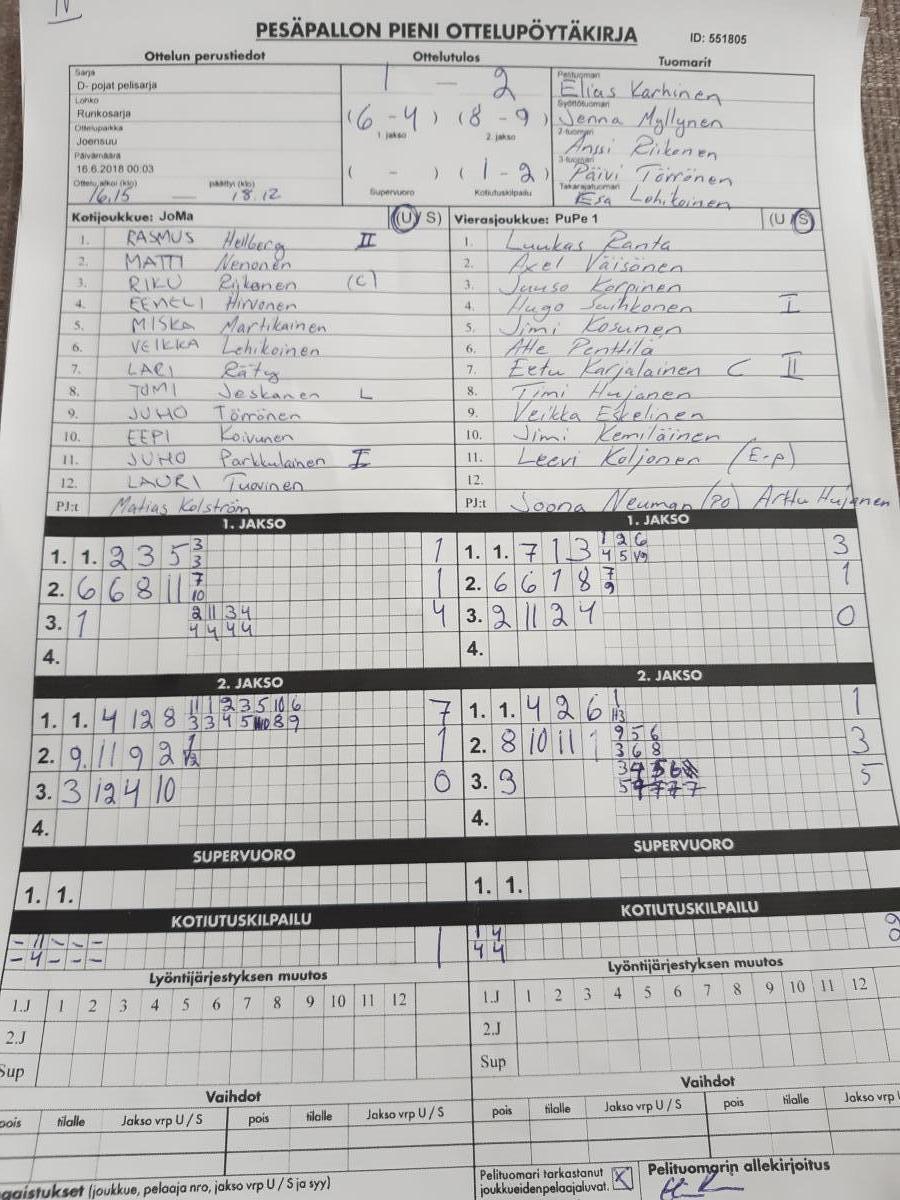 IV
PESÄPALLON PIENI OTTELUPÖYTÄKIRJA
ID: 551805
Ottelun perustiedot
Ottelutulos
Tuomarit
Sarja
D- pojat pelisarja
Lohko
Runkosarja
Ottelupaikka
Joensuu
Päivämäärä
16.6.2018 00:03
Ottelu alkoi (klo) päättyi (klo)
16.15 — 18.12
1 — 2
(6 - 4) (8 - 9)
1. jakso 2. jakso
( - ) (1 - 2)
Supervuoro Kotiutuskilpailu
Pelituomari
Elias Karhinen
Syöttötuomari
Jenna Myllynen
2-tuomari
Anssi Riikonen
3-tuomari
Päivi Törrönen
Takarajatuomari
Esa Lehikoinen
Kotijoukkue: JoMa (U / S)
1. RASMUS Hellberg II
2. MATTI Nenonen
3. RIKU Riikonen (C)
4. EEMELI Hirvonen
5. MISKA Martikainen
6. VEIKKA Lehikoinen
7. LARI Räty
8. TOMI Jeskanen L
9. JUHO Törrönen
10. EEPI Koivunen
11. JUHO Parkkulainen I
12. LAURI Tuovinen
PJ:t Matias Kolström
Vierasjoukkue: PuPe 1 (U / S)
1. Luukas Ranta
2. Axel Väisänen
3. Juuso Korpinen
4. Hugo Suihkonen I
5. Jimi Kosunen
6. Atte Penttilä
7. Eetu Karjalainen C II
8. Timi Hujanen
9. Veikka Eskelinen
10. Jimi Kemiläinen
11. Leevi Koljonen (E-p)
12.
PJ:t Joona Neuman (PO) Arttu Hujanen
1. JAKSO
1. 1. 2 3 5 3 1
3
2. 6 6 8 11 7 1
10
3. 1 2 11 3 4 4
4 4 4 4
4.
1. JAKSO
1. 1. 7 1 3 1 2 6 3
4 5 1/9
2. 6 6 7 8 7 1
9
3. 2 11 2 4 0
4.
2. JAKSO
1. 1. 4 12 8 11 1 2 3 5 10 6 7
3 3 4 5 8 9
2. 9 11 9 2 1 1
1/2
3. 3 12 4 10 0
4.
2. JAKSO
1. 1. 4 2 6 1 1
2. 8 10 11 1 9 5 6 3
3 6 8
3. 3 5
4.
SUPERVUORO
1. 1.
SUPERVUORO
1. 1.
KOTIUTUSKILPAILU
- 11 - - - 1
- 4 - - -
KOTIUTUSKILPAILU
1 4 2
4 4
Lyöntijärjestyksen muutos
1.J 1 2 3 4 5 6 7 8 9 10 11 12
2.J
Sup
Lyöntijärjestyksen muutos
1.J 1 2 3 4 5 6 7 8 9 10 11 12
2.J
Sup
Vaihdot
pois tilalle Jakso vrp U / S pois tilalle Jakso vrp U / S
Vaihdot
pois tilalle Jakso vrp U / S pois tilalle Jakso vrp U
(joukkue, pelaaja nro, jakso vrp U / S ja syy)
Pelituomari tarkastanut
joukkueidenpelaajaluvat. X
Pelituomarin allekirjoitus